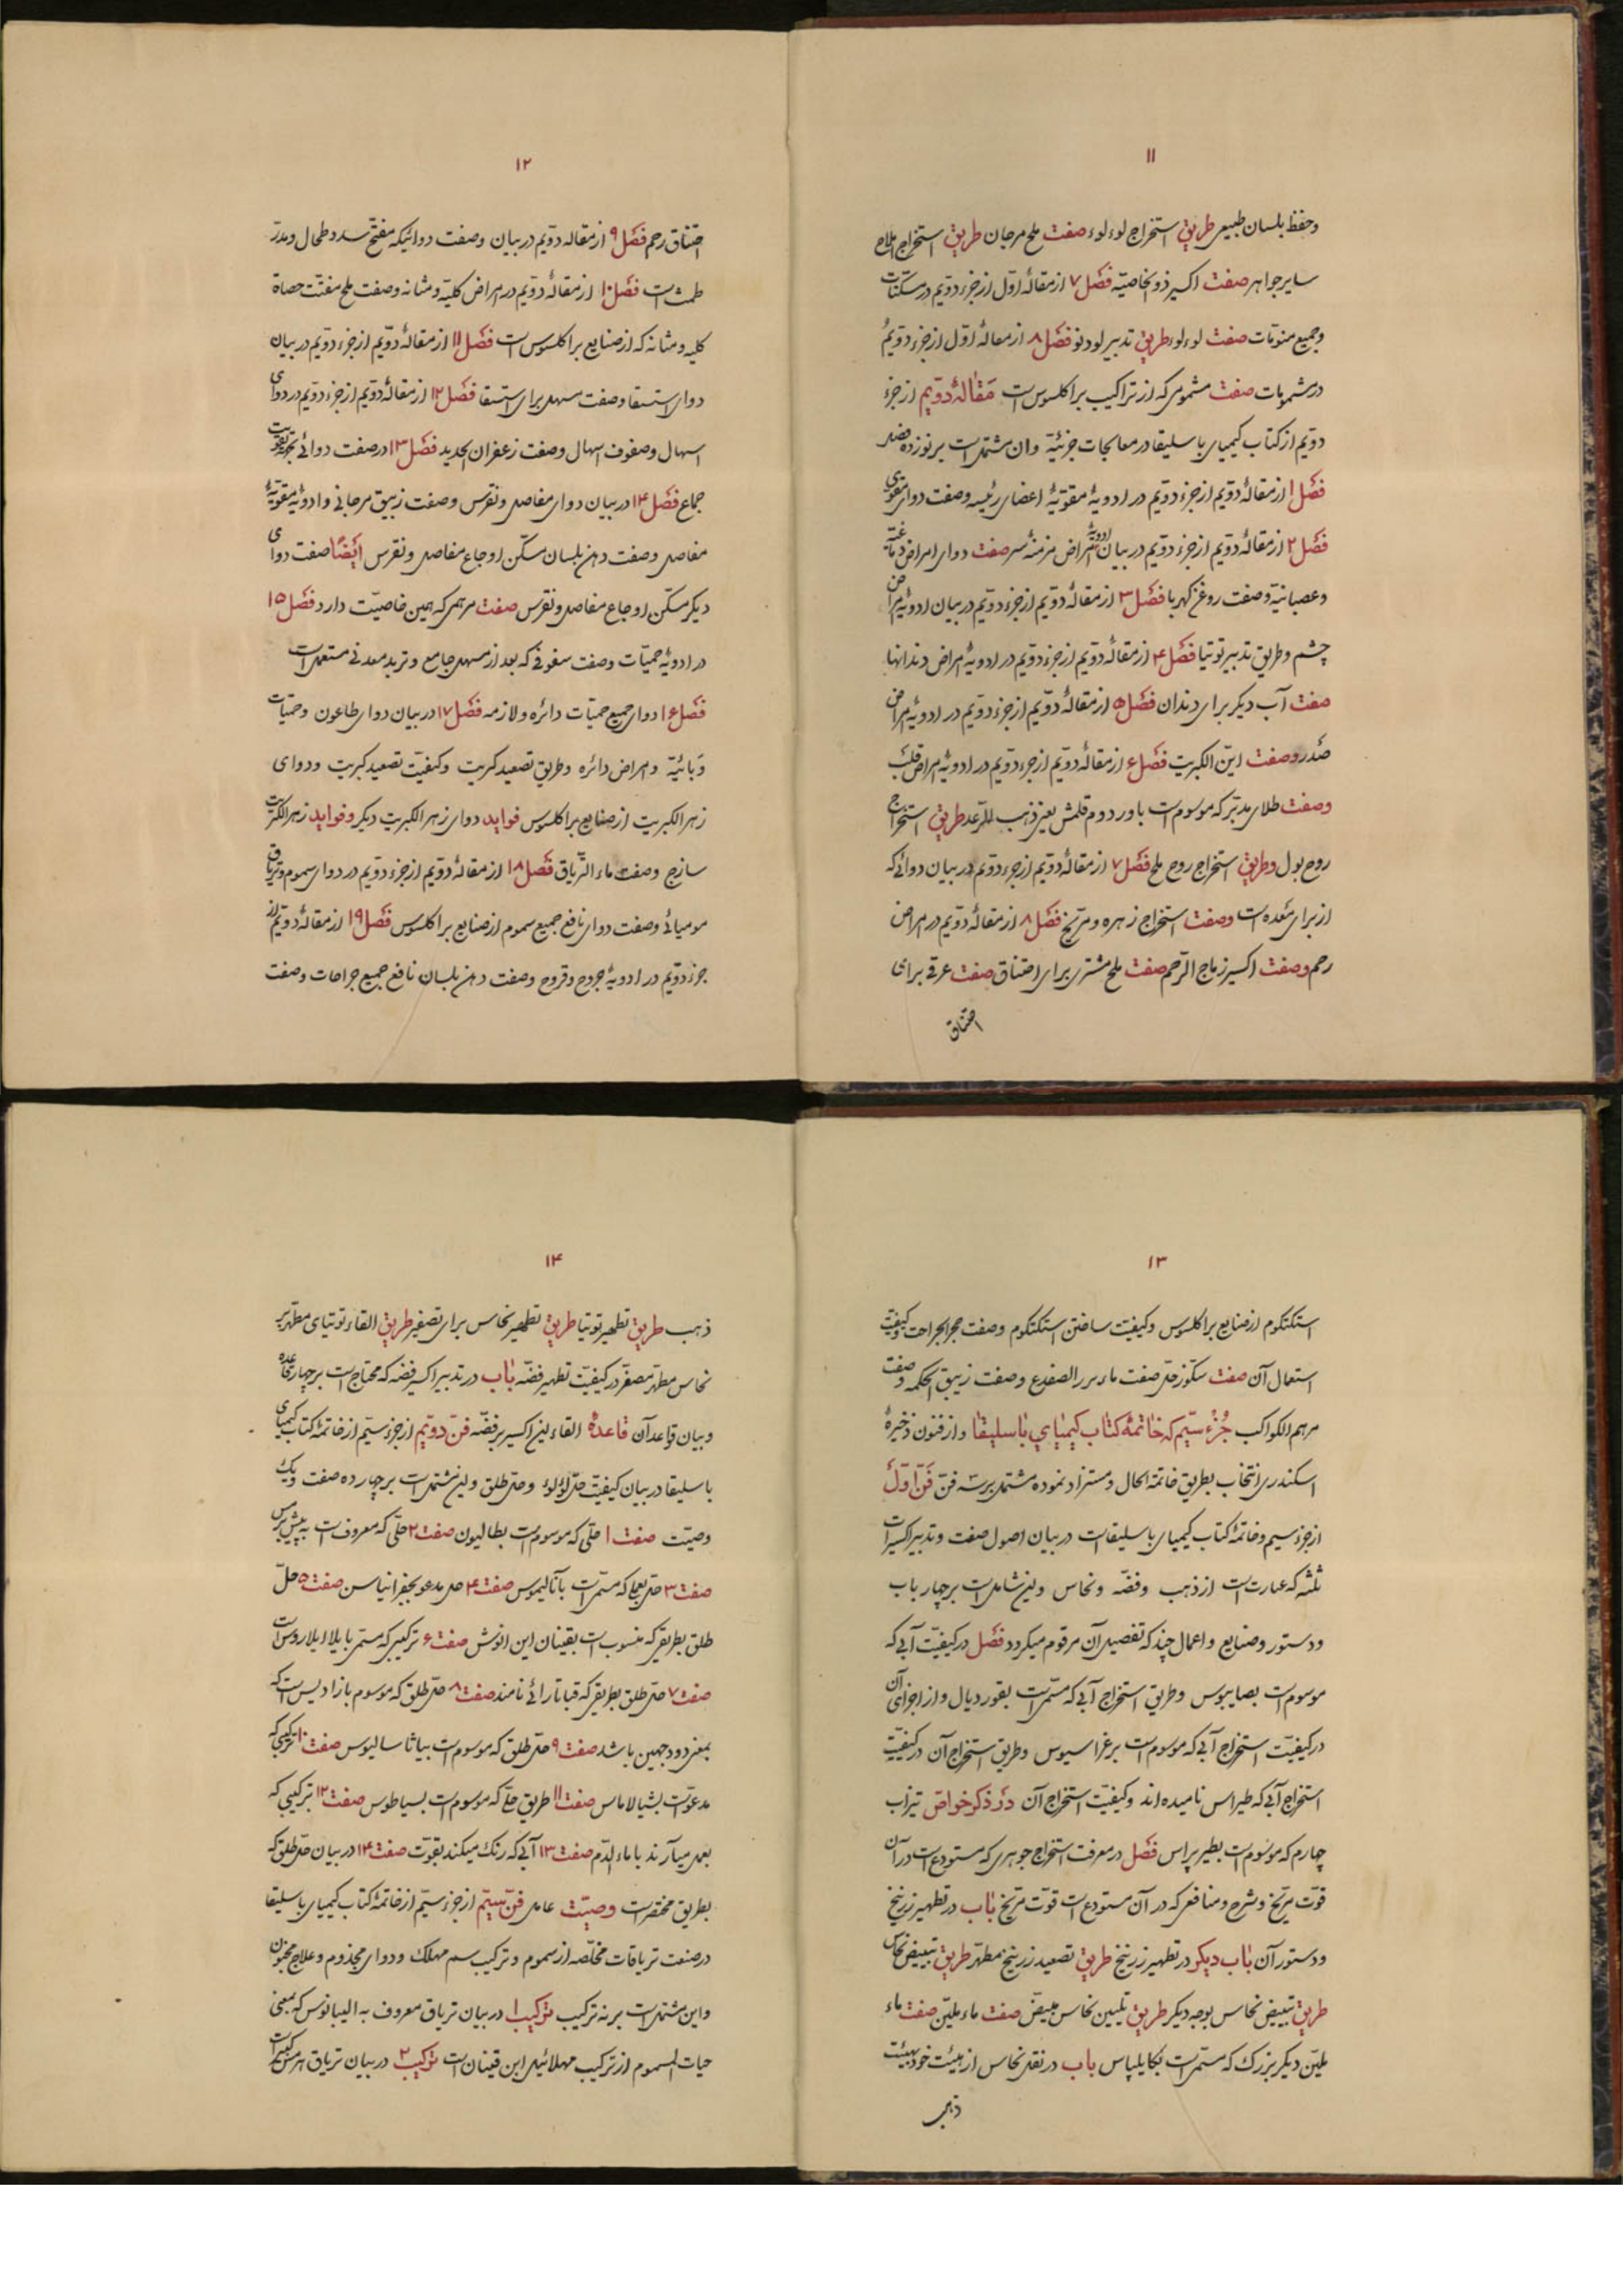 ۱۱
وحفظ بلسان طبیعی طریق استخراج لوءلوء صفت ملح مرجان طریق استخراج املاح
سایر جواهر صفت اکسیر ذو الخاصیّه فصل ۷ از مقالهٔ اوّل از جزء دوّیم در مسکّنات
وجمیع منوّمات صفت لوءلوء طریق تدبیر لودنو فصل ۸ از مقالهٔ اوّل از جزء دوّیم
در مشمومات صفت مشمومی که از تراکیب براکلسوس است مقالهٔ دوّیم از جزء
دوّیم از کتاب کیمیای باسلیقا در معالجات جزئیّة وان مشتمل است بر نوزده فصل
فصل ۱ از مقالهٔ دوّیم از جزء دوّیم در ادویهٔ مقوّیهٔ اعضای رئیسه وصفت دوای مقوی
فصل ۲ از مقالهٔ دوّیم از جزء دوّیم در بیان ادویهٔ امراض مزمنهٔ سر صفت دوای امراض دماغیّه
وعصبانیّة وصفت روغن کهربا فصل ۳ از مقالهٔ دوّیم از جزء دوّیم در بیان ادویهٔ امراض
چشم وطریق تدبیر توتیا فصل ۴ از مقالهٔ دوّیم از جزء دوّیم در ادویهٔ امراض دندانها
صفت آب دیکر برای دندان فصل ۵ از مقالهٔ دوّیم از جزء دوّیم در ادویهٔ امراض
صدر وصفت این الکبریت فصل ۶ از مقالهٔ دوّیم از جزء دوّیم در ادویهٔ امراض قلب
وصفت طلای مدبّر که موسوم است باورد دوم قلمش یعنی ذهب للرّعد طریق استخراج
روح بول وطریق استخراج روح ملح فصل ۷ از مقالهٔ دوّیم از جزء دوّیم در بیان دوائی که
از برای معده است وصفت استخراج زهره ومرّیخ فصل ۸ از مقالهٔ دوّیم در امراض
رحم وصفت اکسیر زماج الرّحم صفت ملح مشتری برای اختناق صفت عرقی برای
اختناق
۱۲
اختناق رحم فصل ۹ از مقاله دوّیم در بیان وصفت دوائیکه مفتّح سدد وطحال ومدرّ
طمث است فصل ۱۰ از مقالهٔ دوّیم در امراض کلیّه ومثانه وصفت ملح مفتّت حصاة
کلیه ومثانه که از صنایع براکلسوس است فصل ۱۱ از مقالهٔ دوّیم از جزء دوّیم در بیان
دوای استسقا وصفت مسهل برای استسقا فصل ۱۲ از مقالهٔ دوّیم از جزء دوّیم در دوای
اسهال وصفوف اسهال وصفت زعفران الحدید فصل ۱۳ در صفت دوائی بجهة تقویت
جماع فصل ۱۴ در بیان دوای مفاصل ونقرس وصفت زیبق مرجانی وادویهٔ مقوّیهٔ
مفاصل وصفت دهن بلسان مسکّن اوجاع مفاصل ونقرس ایضًا صفت دوای
دیکر مسکّن اوجاع مفاصل ونقرس صفت مرهمی که همین خاصیّت دارد فصل ۱۵
در ادویهٔ حمیّات وصفت سفوفی که بعد از مسهل جامع وتربد معدنی مستعمل است
فصل ۱۶ دوای جمیع حمیّات دائره ولازمه فصل ۱۷ در بیان دوای طاعون وحمیّات
وبائیّه وامراض دائره وطریق تصعید کبریت وکیفیّت تصعید کبریت ودوای
زهر الکبریت از صنایع براکلسوس فواید دوای زهر الکبریت دیکر وفواید زهر الکبریت
سازج وصفت ماء التّریاق فصل ۱۸ از مقالهٔ دوّیم از جزء دوّیم در دوای سموم وتریاق
مومیائی وصفت دوای نافع جمیع سموم از صنایع براکلسوس فصل ۱۹ از مقالهٔ دوّیم از
جزء دوّیم در ادویهٔ جروح وقروح وصفت دهن بلسان نافع جمیع جراحات وصفت
۱۳
استکتکوم از صنایع براکلسوس وکیفیّت ساختن استکتکوم وصفت حجر الجراحت وکیفیّت
استعمال آن صفت صفت ماء بزر الضفدع وصفت زیبق الحکمه وصفت
مرهم الکواکب جُزْء سیّم که خاتمهٔ کتاب کیمیای باسلیقا واز فنون ذخیرهٔ
اسکندری انتخاب بطریق خاتمة الحال ومستزاد نموده مشتمل بر سه فنّ فنّ اوّل
از جزء سیم وخاتمهٔ کتاب کیمیای باسلیقا است در بیان اصول صفت وتدبیر اکسیرات
ثلثه که عبارت است از ذهب وفضّه ونحاس واین شامل است بر چهار باب
ودستور وصنایع واعمال چند که تفصیل آن مرقوم میکردد فصل در کیفیّت آبی که
موسوم است بصابیوس وطریق استخراج آبی که مسمّی است بقوردیال واز اجزای آن
در کیفیّت استخراج آبی که موسوم است برغراسیوس وطریق استخراج آن در کیفیّت
استخراج آبی که طیراس نامیده اند وکیفیّت استخراج آن در ذکر خواصّ تیزاب
چهارم که موسوم است بطیر پراس فصل در معرفت استخراج جوهری که مستودع است در آن
قوّت مرّیخ وشرح ومنافعی که در آن مستودع است قوّت مرّیخ باب در تطهیر زرنیخ
ودستور آن باب دیکر در تطهیر زرنیخ طریق تصعید زرنیخ مطهّر طریق تبییض نحاس
طریق تبییض نحاس بوجه دیکر طریق تلیین نحاس مبیّض صفت ماء ملیّن صفت ماء
ملیّن دیکر بزرک که مسمّی است بکایلپاس باب در نقل نحاس از هیئت خود بهیئت
ذهب
۱۴
ذهب طریق تطهیر توتیا طریق تطهیر نحاس برای تصفیر طریق القاء توتیای مطهّر بر
نحاس مطهّر مصفّر در کیفیّت تطهیر فضّه باب در تدبیر اکسیر فضّه که محتاج است بر چهار قاعده
وبیان قواعد آن قاعدهٔ القاء این اکسیر بر فضّه فنّ دوّیم از جزء سیّم از خاتمهٔ کتاب کیمیای
باسلیقا در بیان کیفیّت حلّ لؤلؤ وحلّ طلق واین مشتمل است بر چهارده صفت ویک
وصیّت صفت ۱ حلّی که موسوم است بطالیون صفت ۲ حلّی که معروف است
صفت ۳ حلّ بعملی که مسمّی است بآنالیموس صفت ۴ حل مدعو بخفرانیاسن صفت ۵ حلّ
طلق بطریقی که منسوب است بقینان ابن انوش صفت ۶ ترکیبی که مسمّی بایلا ایلاروس است
صفت ۷ حلّ طلق بطریقی که قباتارائی نامند صفت ۸ حلّ طلق که موسوم بازادیس است که
بمعنی ذو وجهین باشد صفت ۹ حلّ طلق که موسوم است بیاثاسالیوس صفت ۱۰ ترکیبی که
مدعوّ است بشیالاماس صفت ۱۱ طریق حلّی که موسوم است بسیاطوس صفت ۱۲ ترکیبی که
بعمل میآرند با ماء الدّم صفت ۱۳ آبی که رنک میکند بقوّت صفت ۱۴ در بیان حلّ طلق که
بطریق مختصر است وصیّت عامل فنّ سیّم از جزء سیّم از خاتمهٔ کتاب کیمیای باسلیقا
در صنعت تریاقات مخلّصه از سموم وترکیب سم مهلک ودوای مجذوم وعلاج مجنون
واین مشتمل است بر نه ترکیب ترکیب ۱ در بیان تریاق معروف به الیبانوس که بمعنی
حیات المسموم از ترکیب مهلائیل ابن قینان است ترکیب ۲ در بیان تریاق هرمس